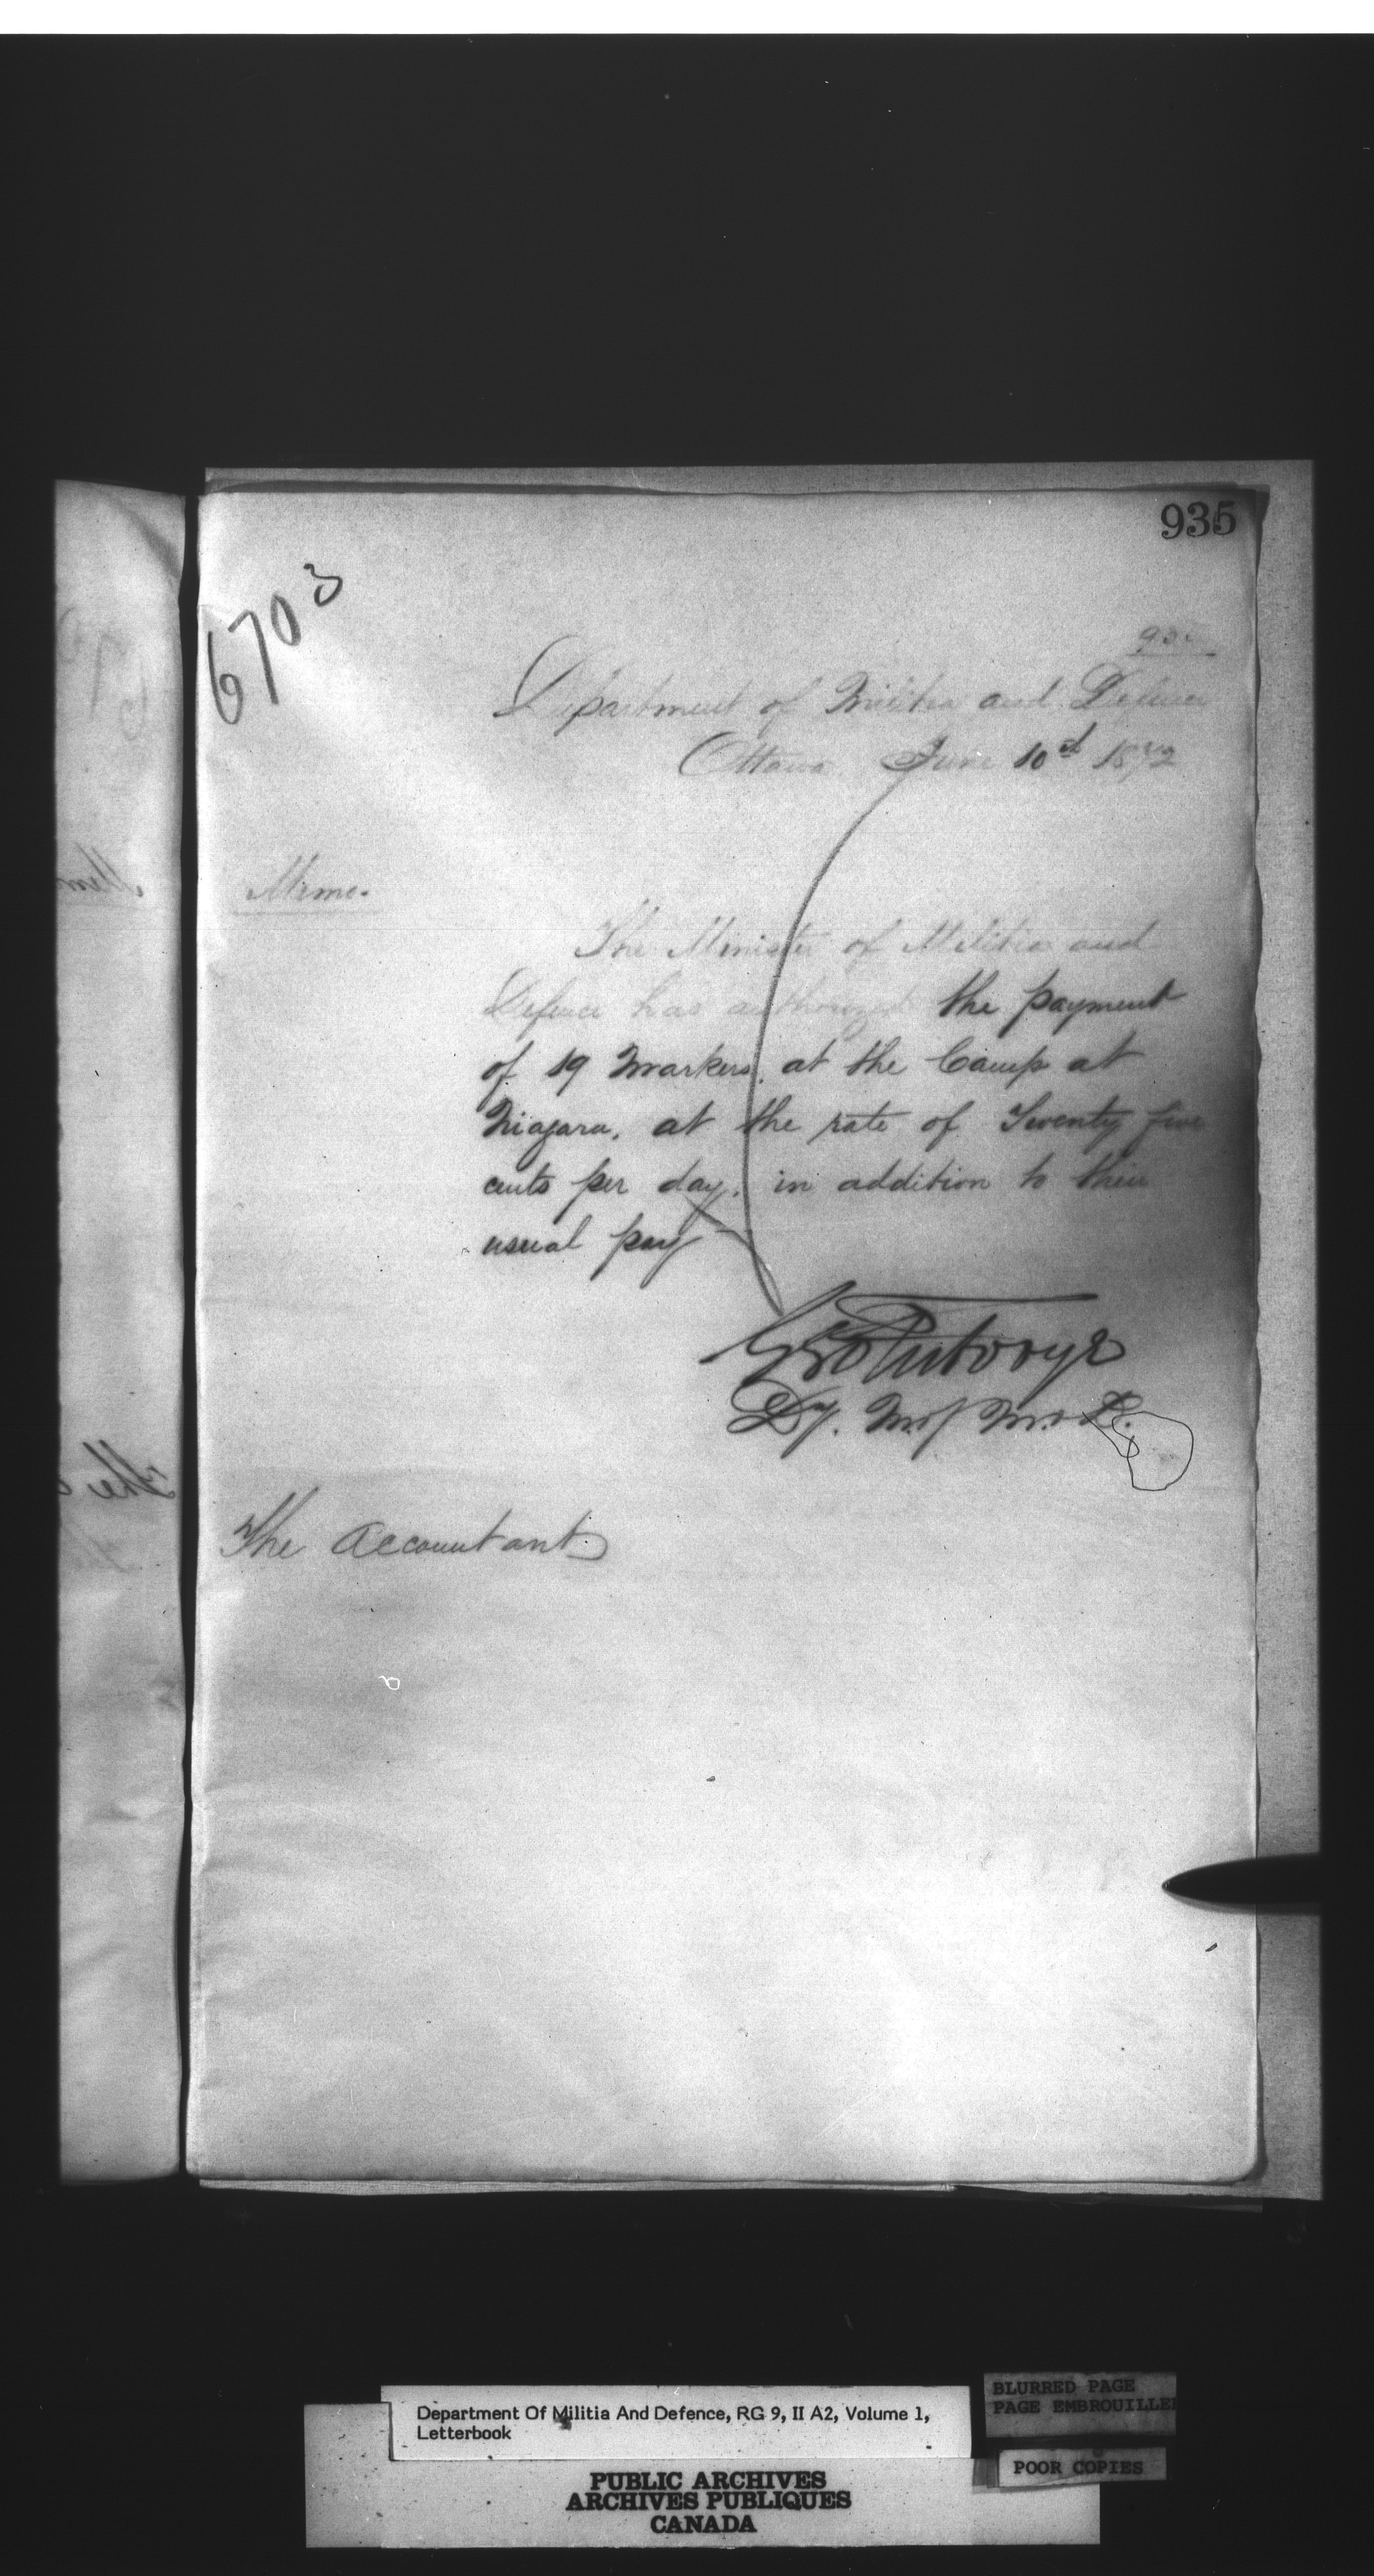 935
6703
Department of Militia and Defence
Ottawa June 10th 1872
Memo.
The Minister of Militia and
Defence has authorized the payment
of 19 Markers, at the Camp at
Niagara, at the rate of Twenty five
cents per day, in addition to their
usual pay
Geo Futvoye
Dy. M. of M. & D.
The Accountant
Department Of Militia And Defence, RG 9, II A2, Volume 1,
Letterbook
BLURRED PAGE
PAGE EMBROUILLEE
POOR COPIES
PUBLIC ARCHIVES
ARCHIVES PUBLIQUES
CANADA